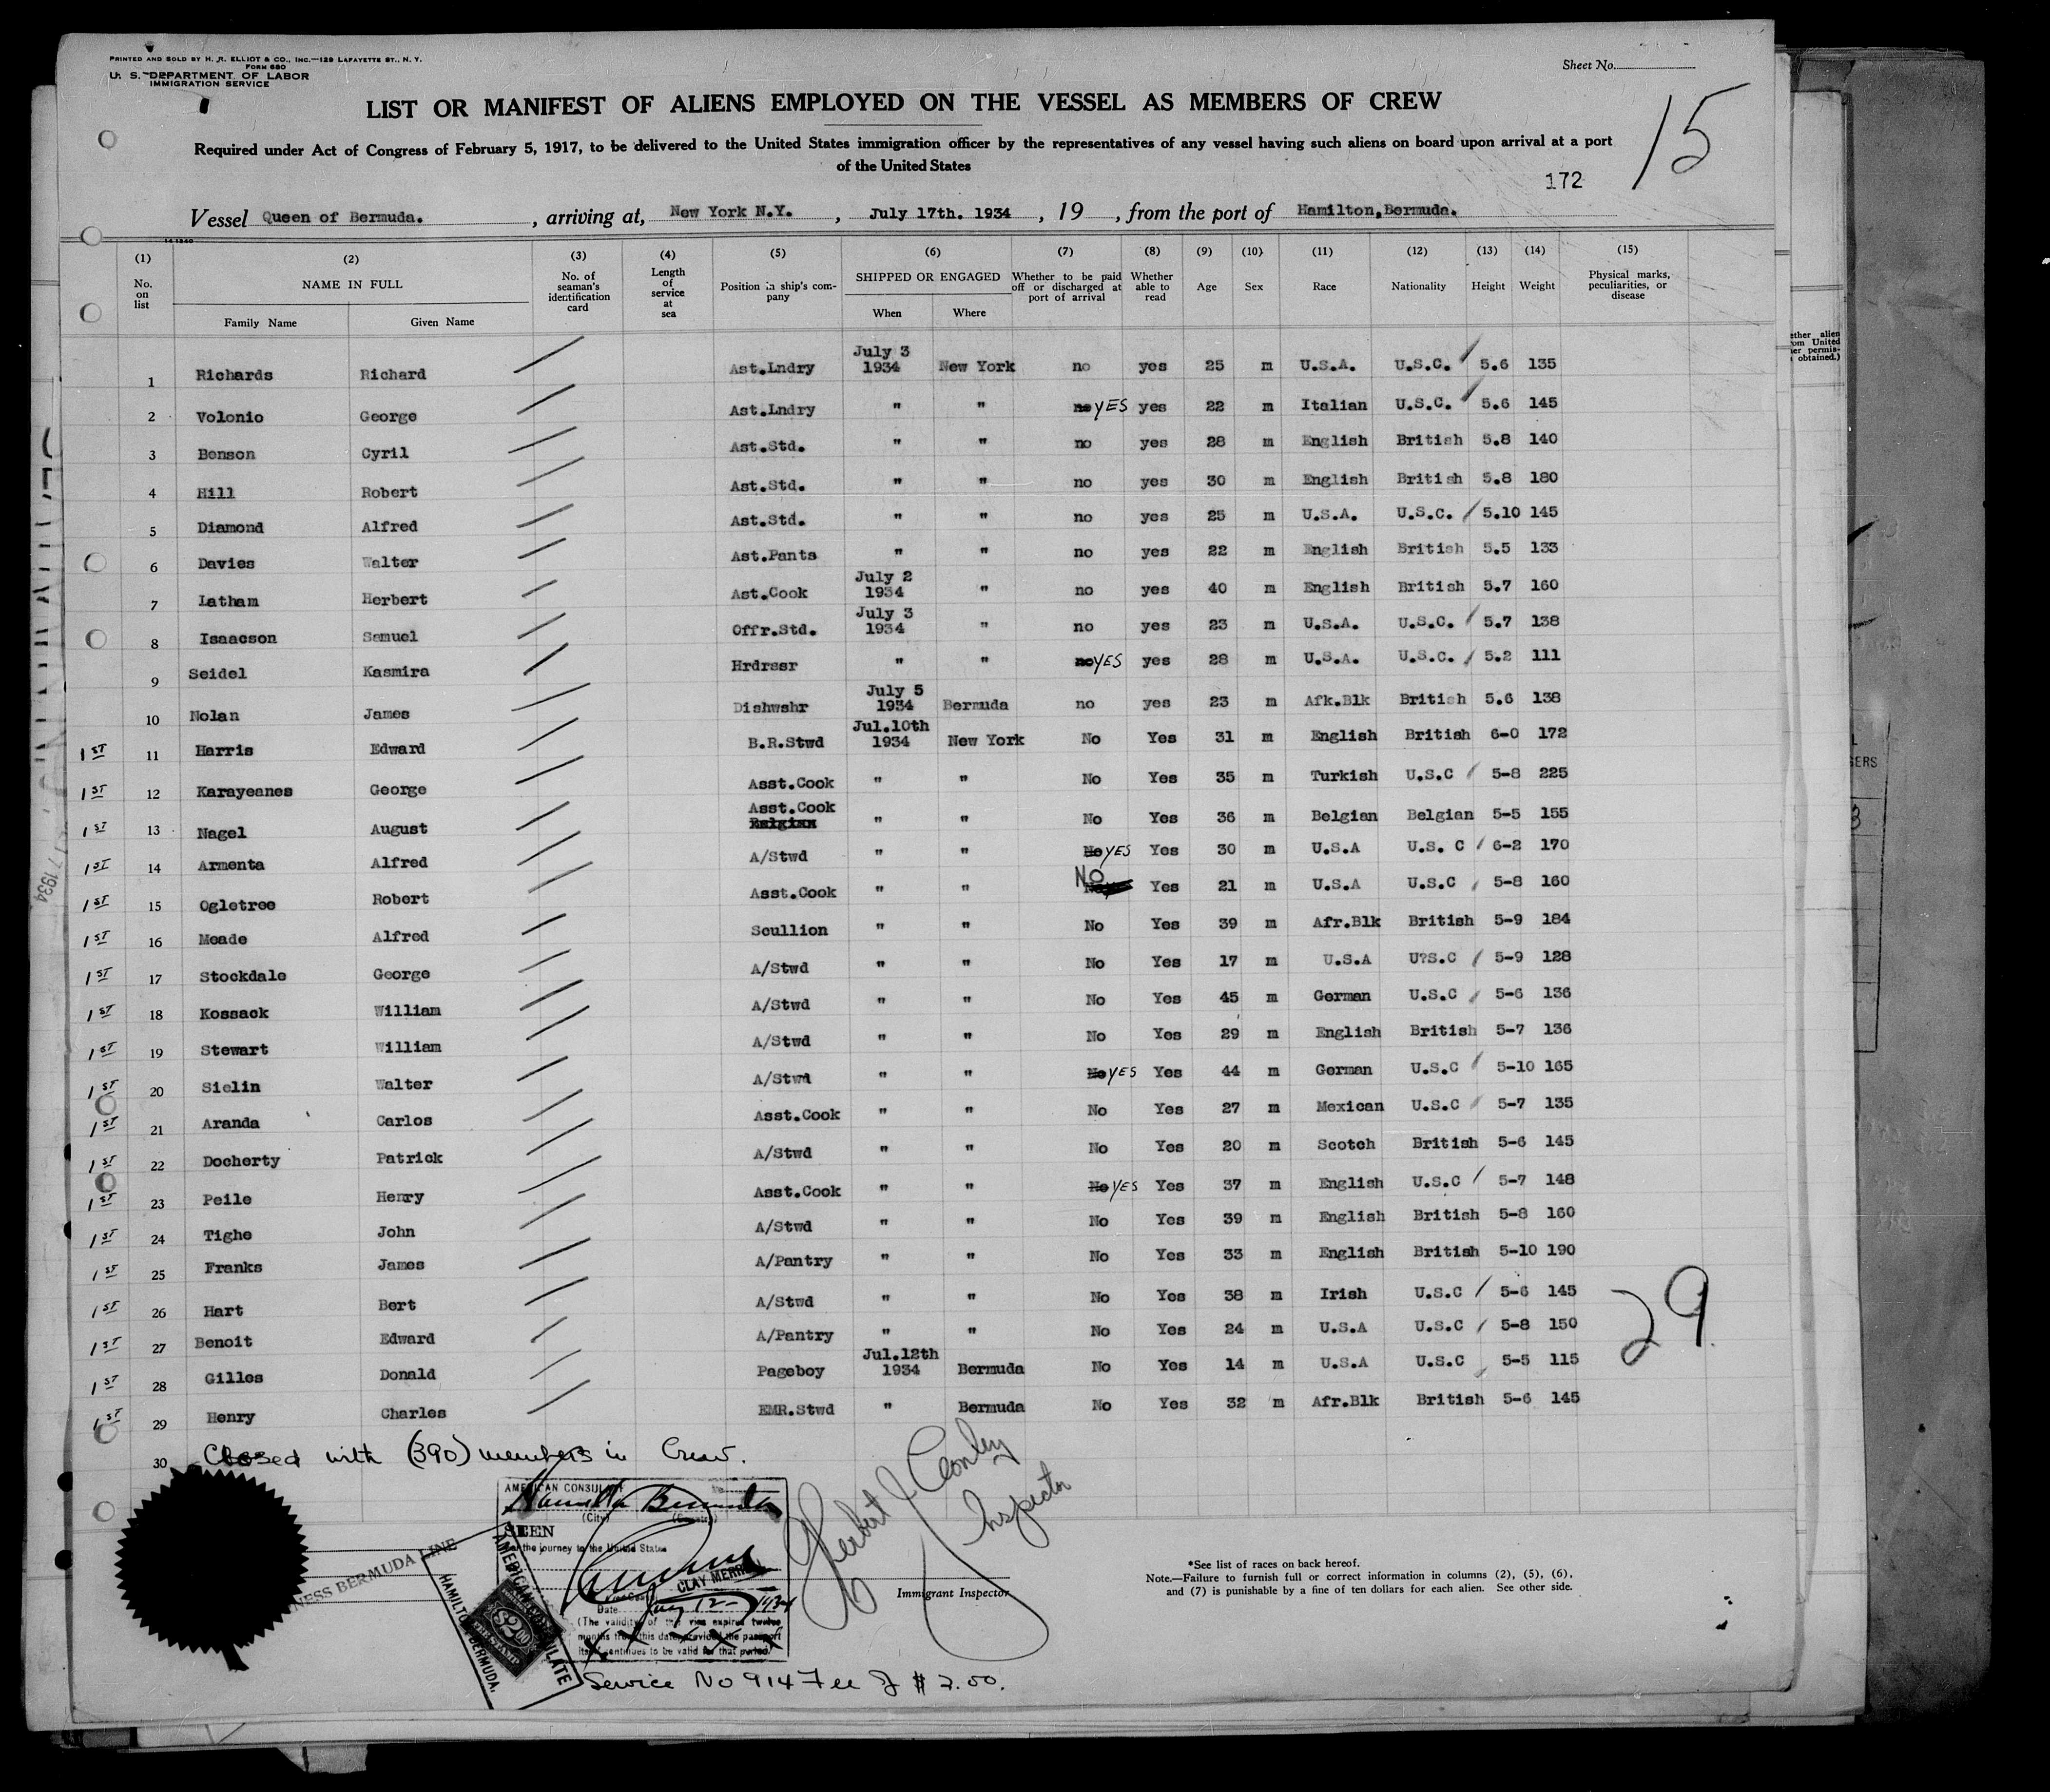 PRINTED AND SOLD BY H. R. ELLIOT & CO., INC.—129 LAFAYETTE ST., N. Y.
FORM 680
U. S. DEPARTMENT OF LABOR
IMMIGRATION SERVICE
Sheet No.
15
LIST OR MANIFEST OF ALIENS EMPLOYED ON THE VESSEL AS MEMBERS OF CREW
Required under Act of Congress of February 5, 1917, to be delivered to the United States immigration officer by the representatives of any vessel having such aliens on board upon arrival at a port
of the United States
172
Vessel Queen of Bermuda. , arriving at, New York N.Y. , July 17th. 1934 , 19 , from the port of Hamilton,Bermuda.
(1) (2) (3) (4) (5) (6) (7) (8) (9) (10) (11) (12) (13) (14) (15)
No. on list NAME IN FULL Family Name Given Name No. of seaman's identification card Length of service at sea Position in ship's company SHIPPED OR ENGAGED When Where Whether to be paid off or discharged at port of arrival Whether able to read Age Sex Race Nationality Height Weight Physical marks, peculiarities, or disease
1 Richards Richard Ast.Lndry July 3 1934 New York no yes 25 m U.S.A. U.S.C. 5.6 135
2 Volonio George Ast.Lndry " " no YES yes 22 m Italian U.S.C. 5.6 145
3 Benson Cyril Ast.Std. " " no yes 28 m English British 5.8 140
4 Hill Robert Ast.Std. " " no yes 30 m English British 5.8 180
5 Diamond Alfred Ast.Std. " " no yes 25 m U.S.A. U.S.C. 5.10 145
6 Davies Walter Ast.Pants " " no yes 22 m English British 5.5 133
7 Latham Herbert Ast.Cook July 2 1934 " no yes 40 m English British 5.7 160
8 Isaacson Samuel Offr.Std. July 3 1934 " no yes 23 m U.S.A. U.S.C. 5.7 138
9 Seidel Kasmira Hrdrssr " " no YES yes 28 m U.S.A. U.S.C. 5.2 111
10 Nolan James Dishwshr July 5 1934 Bermuda no yes 23 m Afk.Blk British 5.6 138
1ST 11 Harris Edward B.R.Stwd Jul.10th 1934 New York No Yes 31 m English British 6-0 172
1ST 12 Karayeanes George Asst.Cook " " No Yes 35 m Turkish U.S.C 5-8 225
1ST 13 Nagel August Asst.Cook Belgian " " No Yes 36 m Belgian Belgian 5-5 155
1ST 14 Armenta Alfred A/Stwd " " No YES Yes 30 m U.S.A U.S. C 6-2 170
1ST 15 Ogletree Robert Asst.Cook " " NO Yes 21 m U.S.A U.S.C 5-8 160
1ST 16 Meade Alfred Scullion " " No Yes 39 m Afr.Blk British 5-9 184
1ST 17 Stockdale George A/Stwd " " No Yes 17 m U.S.A U?S.C 5-9 128
1ST 18 Kossack William A/Stwd " " No Yes 45 m German U.S.C 5-6 136
1ST 19 Stewart William A/Stwd " " No Yes 29 m English British 5-7 136
1ST 20 Sielin Walter A/Stwd " " No YES Yes 44 m German U.S.C 5-10 165
1ST 21 Aranda Carlos Asst.Cook " " No Yes 27 m Mexican U.S.C 5-7 135
1ST 22 Docherty Patrick A/Stwd " " No Yes 20 m Scotch British 5-6 145
1ST 23 Peile Henry Asst.Cook " " No YES Yes 37 m English U.S.C 5-7 148
1ST 24 Tighe John A/Stwd " " No Yes 39 m English British 5-8 160
1ST 25 Franks James A/Pantry " " No Yes 33 m English British 5-10 190
1ST 26 Hart Bert A/Stwd " " No Yes 38 m Irish U.S.C 5-6 145
1ST 27 Benoit Edward A/Pantry " " No Yes 24 m U.S.A U.S.C 5-8 150
1ST 28 Gilles Donald Pageboy Jul.12th 1934 Bermuda No Yes 14 m U.S.A U.S.C 5-5 115
1ST 29 Henry Charles EMR.Stwd " Bermuda No Yes 32 m Afr.Blk British 5-6 145
29
30 Closed with (390) members in Crew.
AMERICAN CONSULATE
Hamilton Bermuda
(City) (Country)
SEEN
For the journey to the United States
CLAY MERRELL
Date July 12 - 1934
(The validity of this visa expires twelve
months from this date, provided the passport
itself continues to be valid for that period)
Service No 914 Fee of $ 2.00.
NESS BERMUDA LINE
AMERICAN CONSULATE
HAMILTON BERMUDA.
$2.00
Herbert J Conley
Inspector
Immigrant Inspector
*See list of races on back hereof.
Note.—Failure to furnish full or correct information in columns (2), (5), (6),
and (7) is punishable by a fine of ten dollars for each alien. See other side.
ether alien
om United
er permis-
obtained.)
17 1934